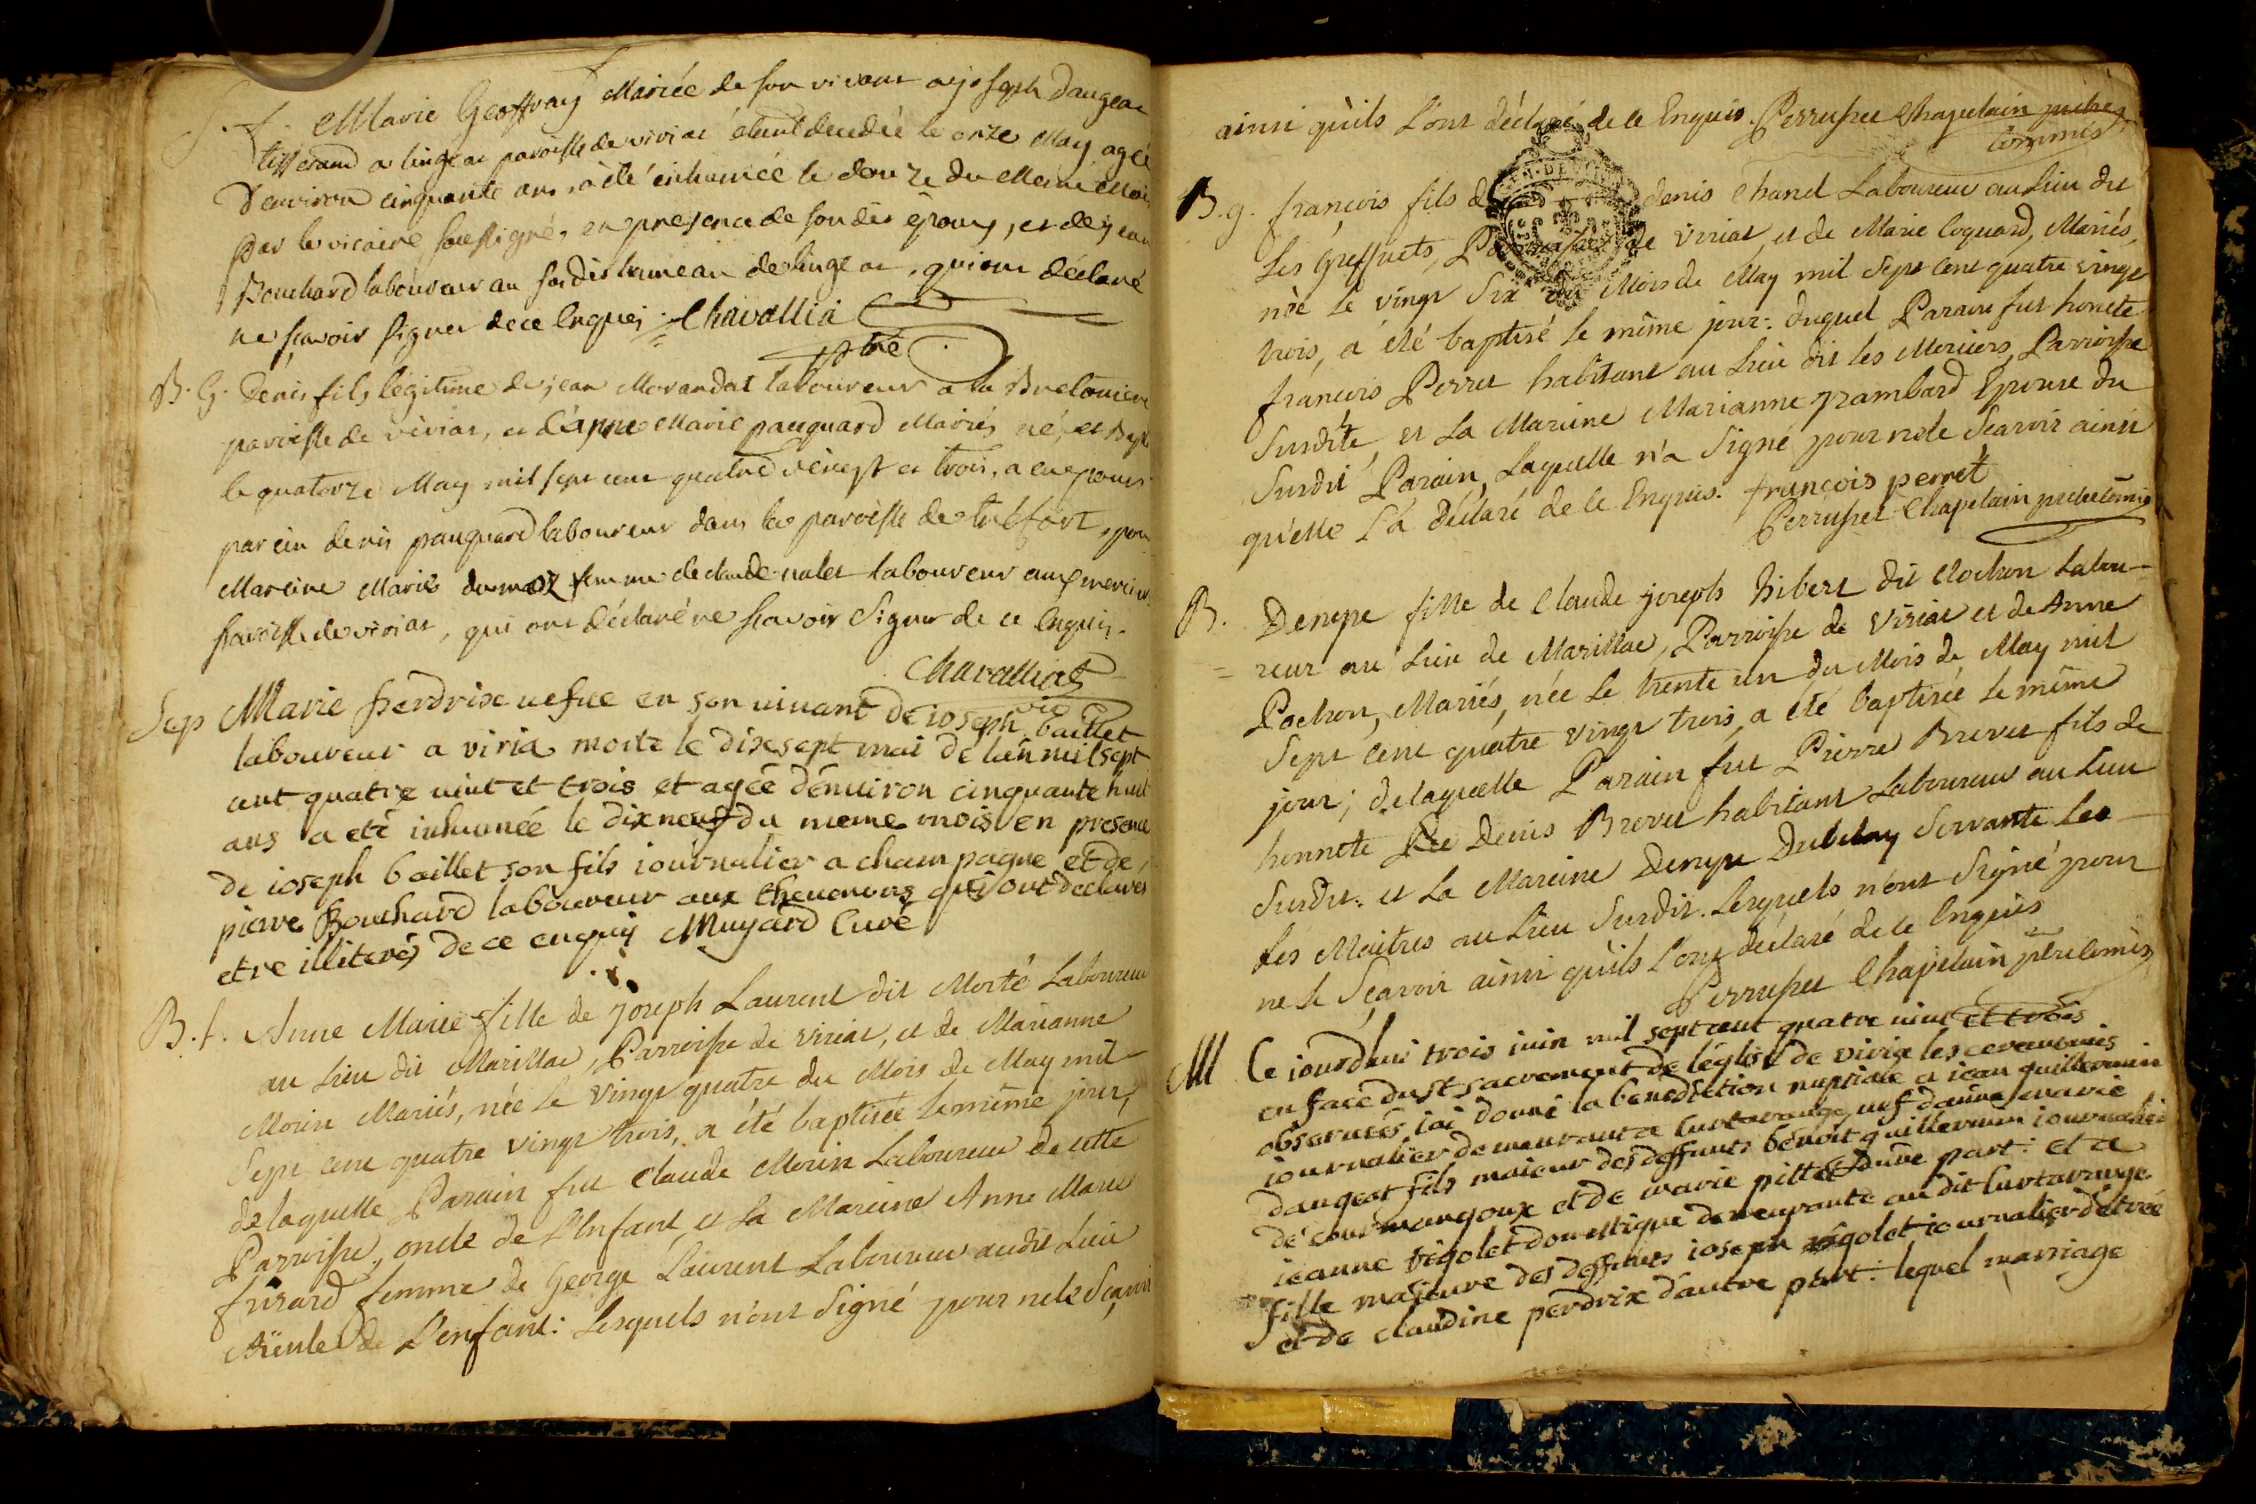 S. f. Marie Geoffray Mariée de son vivant a joseph dangeat
tisserand a lingeat paroisse de viriat étant decedée le onze May agée
d'environ cinquante ans a été inhumée le douze du Meme Mois
par le vicaire soussigné, en presence de son dit époux, et de jean
Bouchard laboureur au susdit hameau de lingeat, qui ont déclaré
ne scavoir signer de ce Enquis. Chavallia
ptre
B. G. Denis fils légitime de jean Morandat laboureur a la Bretonière
paroisse de viriat, et d'anne Marie pauquard Mariés né, et Bapt
le quatorze May mil sept cent quatre vingt et trois, a eu pour
parein denis pauquard laboureur dans la paroisse de treffort, pour
Mareine Marie dumoz femme de claude nalet laboureur aux merciers
paroisse de viriat, qui ont déclaré ne scavoir signer de ce Enquis.
Chavalliat
Sep Marie perdrix uefue en son uiuant de ioseph baillet
laboureur a viria morte le dixsept mai de lan mil sept
cent quatre uint et trois et agée d'enuiron cinquante huit
ans a eté inhumée le dixneuf du meme mois en presence
de ioseph baillet son fils iournalier a champagne et de
pierre Bouchard laboureur aux cheuenons qui ont declarés
etre illiterés de ce enquis Muyard Curé
B. f. Anne Marie fille de joseph Laurent dit Morté Laboureur
au Lieu dit Marillac, Parroisse de viriat, et de Marianne
Morin Mariés, née Le vingt quatre du Mois de May mil
Sept cent quatre vingt trois, a été baptisée le même jour,
delaquelle Parain fut Claude Morin Laboureur de cette
Parroisse, oncle de L'Enfant, et La Mareine Anne Marie
frisard femme de George Laurent Laboureur audit Lieu
Aïeule de L'enfant: Lesquels n'ont Signé pour ne le Sçavoir
ainsi qu'ils L'ont déclaré de ce Enquis. Perruset Chapelain prêtre
commis
B. g. françois fils de denis Chanel Laboureur au Lieu dit
Les Greffets, Parroisse de Viriat, et de Marie Coquard, Mariés,
née Le vingt Six du Mois de May mil Sept Cent quatre vingt
trois, a été baptisé le même jour: duquel Parain fut honete
françois Perret habitant au Lieu dit les Merciers, Parroisse
Susdite, et La Mareine Marianne Rambard Epouse du
Susdit Parain, Laquelle n'a Signé pour ne le Scavoir ainsi
qu'elle L'a déclaré de ce Enquis. françois perret
Perruset Chapelain prêtre cômis
B. Denyse fille de Claude joseph hibert dit Clochon Labou-
= reur au Lieu de Marillac, Parroisse de Viriat et de Anne
Pochon, Mariés, née Le trente un du Mois de May mil
Sept Cent quatre vingt trois, a été baptisée le même
jour; delaquelle Parain fut Pierre Brevet fils de
honnete Denis Brevet habitant Laboureur au Lieu
Susdit: et La Mareine Denyse Dubelay Servante Les
Les Maitres au Lieu Susdit. Lesquels n'ont Signé pour
ne le Sçavoir ainsi qu'ils L'ont déclaré de ce Enquis
Perruset Chapelain ptre cômis
M Ce iourdhui trois iuin mil sept cent quatre uint et trois
en face du st sacrement de léglise de viria les ceremonies
obseruées iai donné la benediction nuptiale a iean guillermin
iournalier demeurant a curtarange uef danne marie
dangeat fils maieur des deffunts benoit guillermin iournalier
de courmangoux et de marie pillet d'une part: et a
ieanne rigolet domestique demeurante au dit curtarange
fille majeure des deffunts ioseph rigolet iournalier détrée
et de claudine perdrix d'autre part: lequel marriage